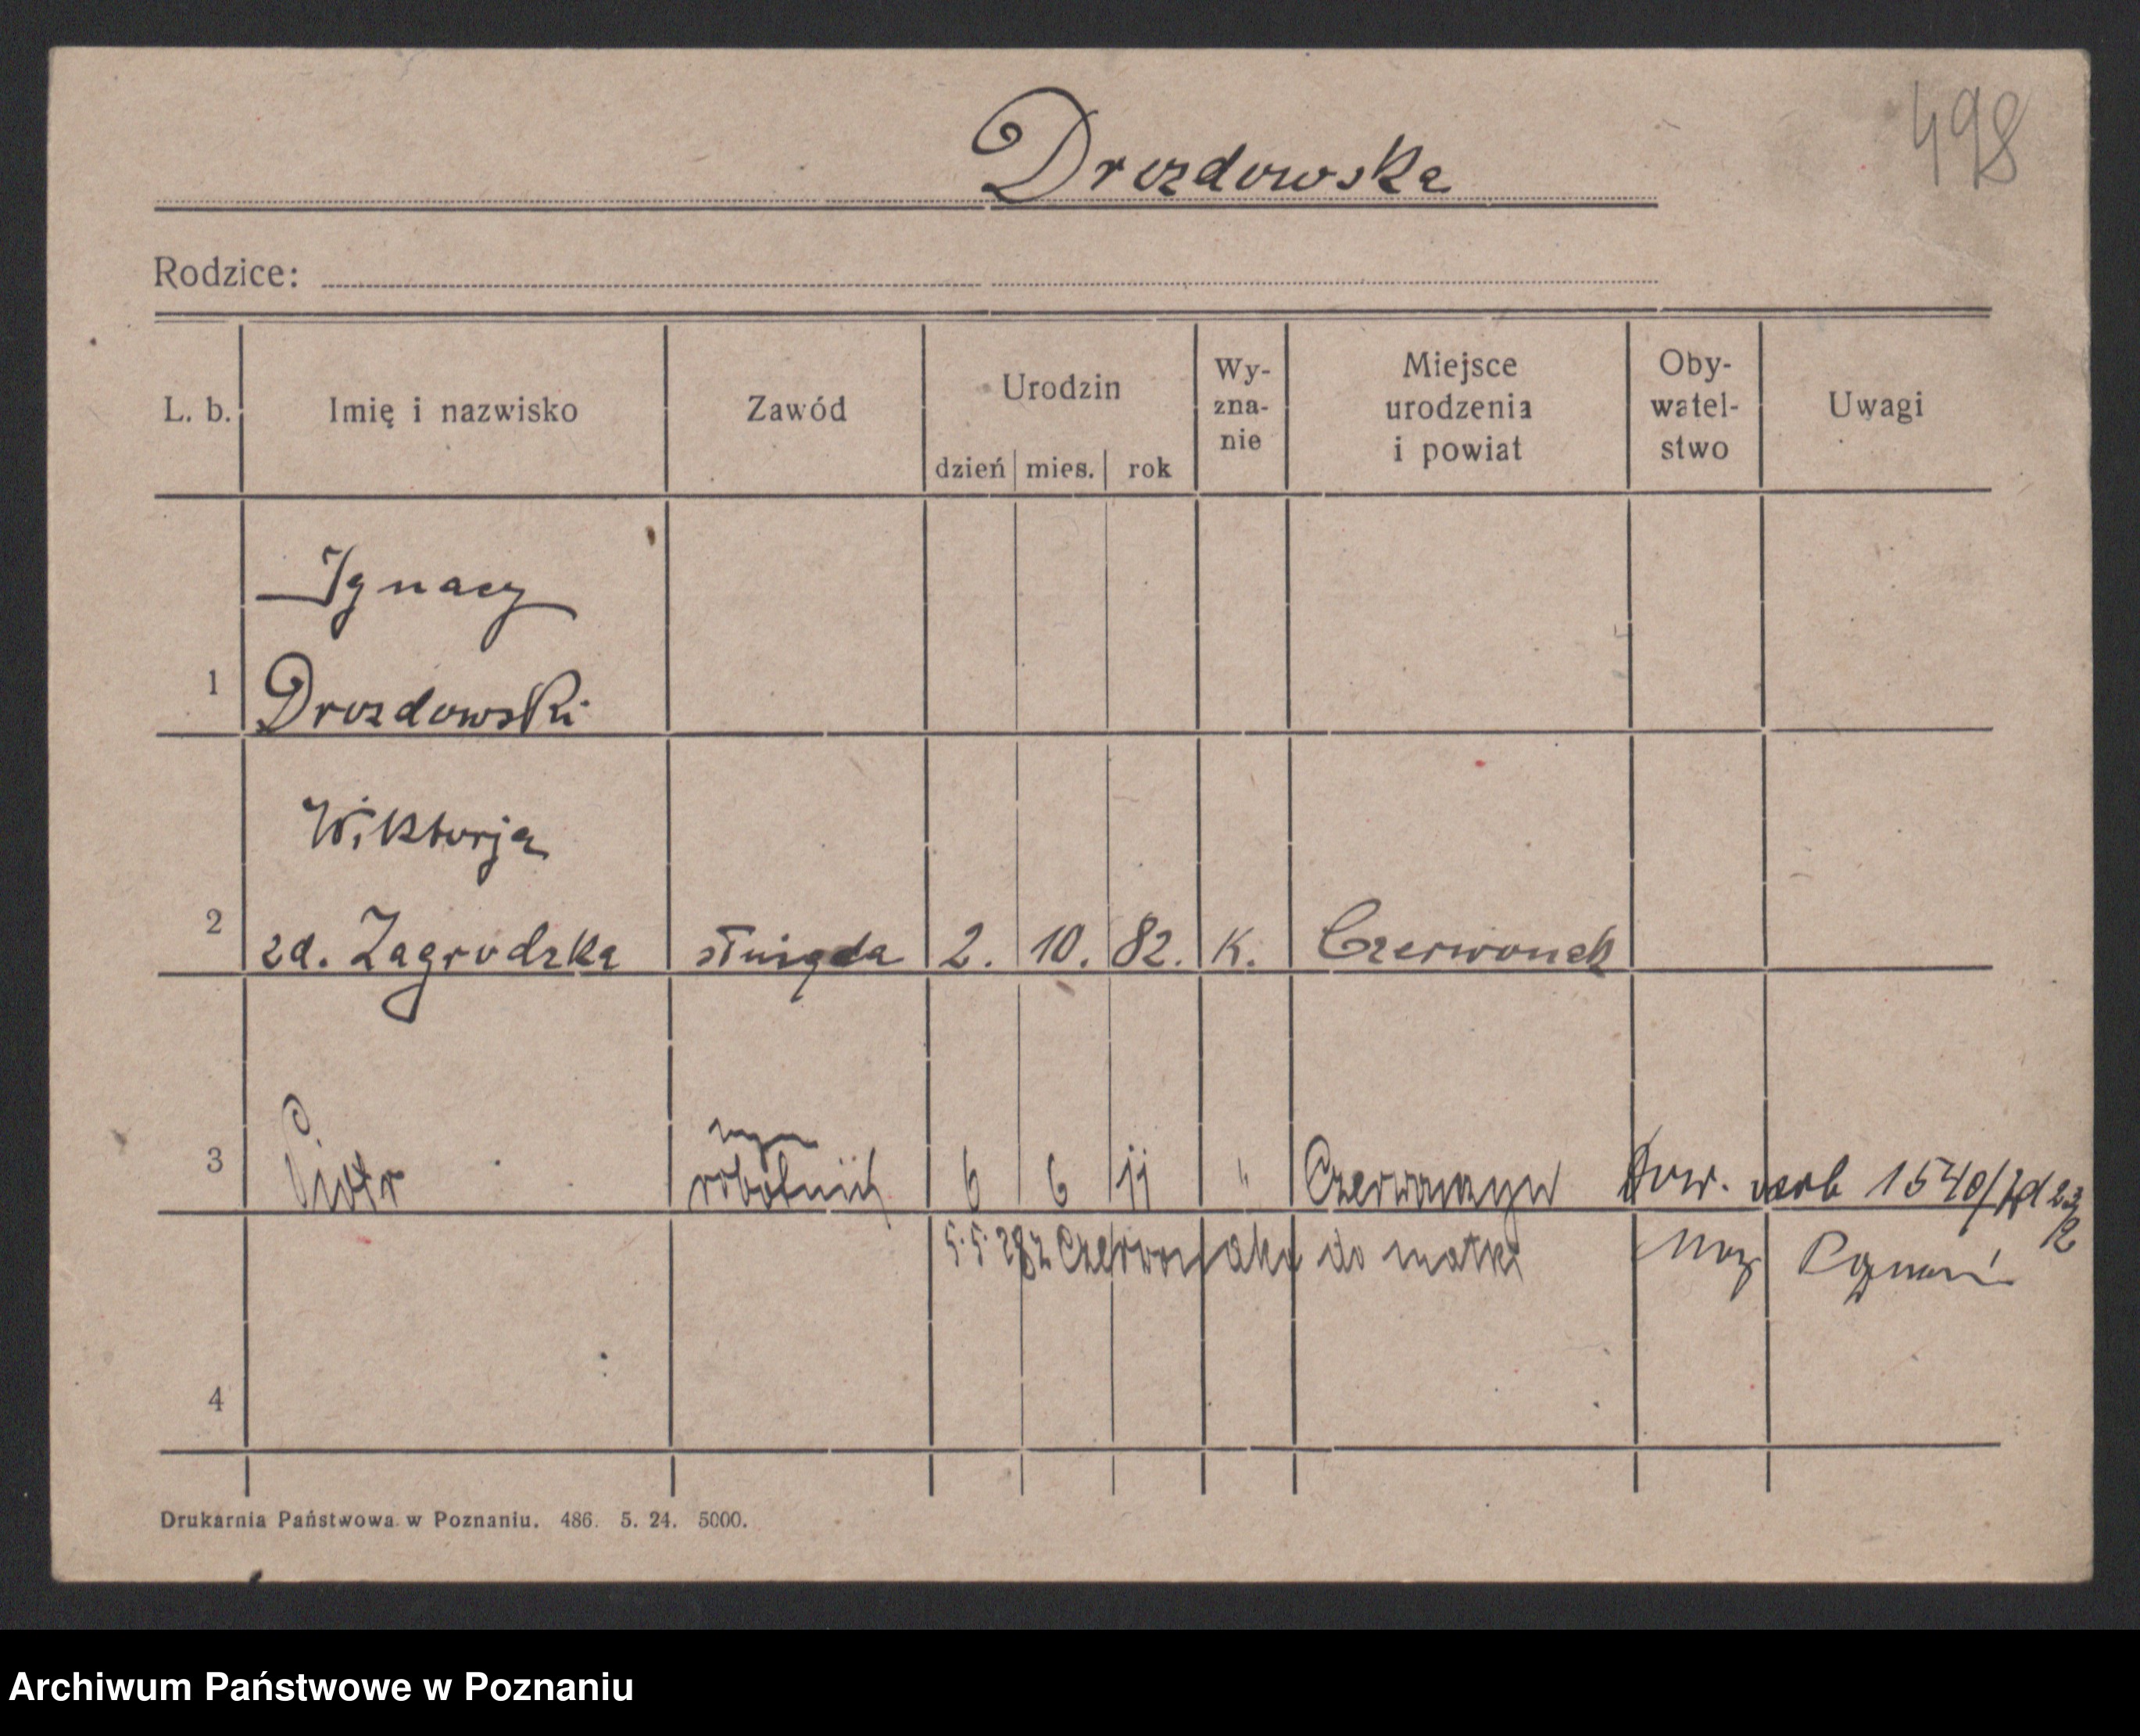 498
Drozdowska
Rodzice:
L. b. Imię i nazwisko Zawód Urodzin dzień mies. rok Wy-zna-nie Miejsce urodzenia i powiat Oby-watel-stwo Uwagi
Ignacy
1 Drozdowski
Wiktorja
2 zd. Zagrodzka 2. 10. 82. K. Czerwonak
3 Piotr robotnik 6 6 11 " Dow. osob 1540/
5.5. do matki
4
Drukarnia Państwowa w Poznaniu. 486. 5. 24. 5000.
Archiwum Państwowe w Poznaniu